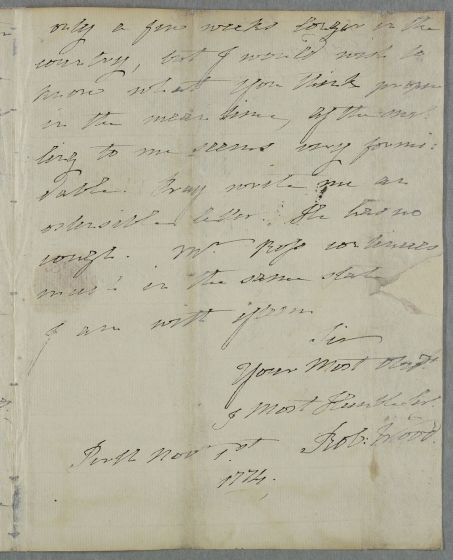 only a few weeks longer in the
country, but I would wish to
know what you think proper
in the mean time, as the swel
ling to me seems very formi:
dable. Pray write me an
ostensible letter. He has no
cough. Mr. Ross continues
much in the same state
I am with esteem
Sir
Your Most Obedt.
& Most Humble Ser.
Perth Novr. 1st Rob: Wood.
1774.